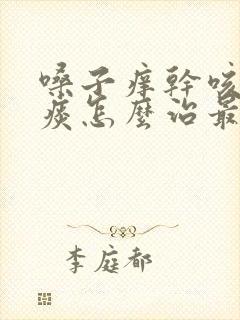 嗓子痒幹咳
痰怎麼治最
李庭都